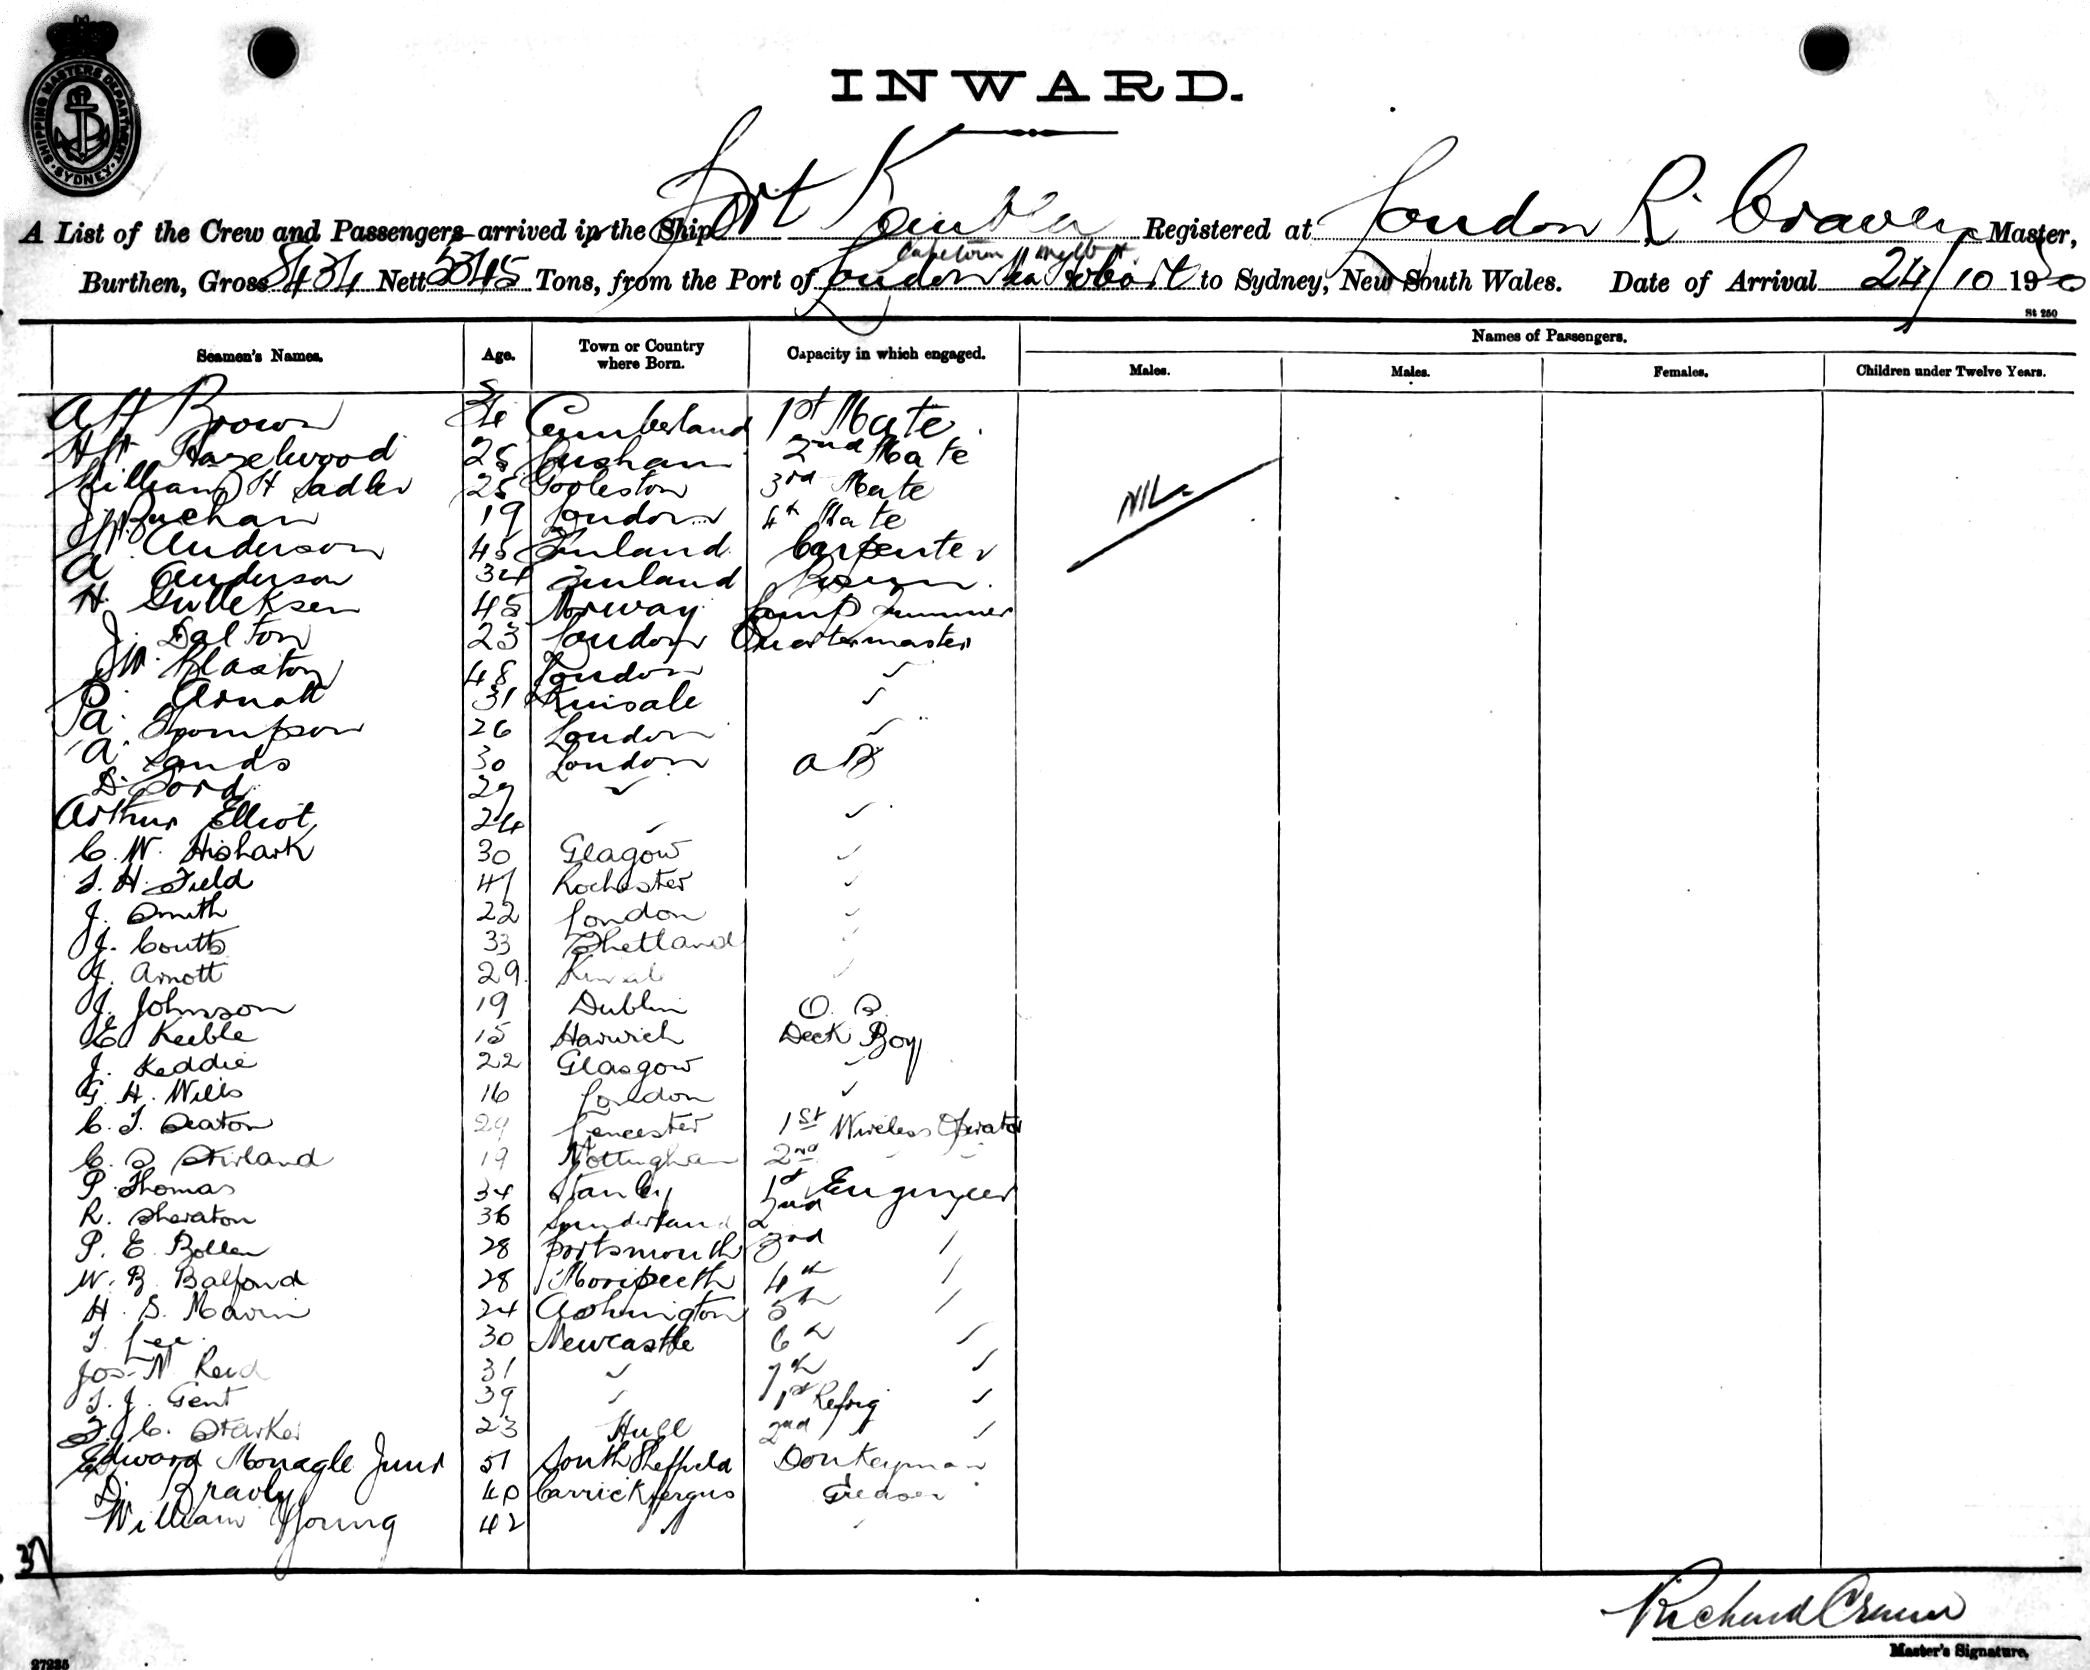 SHIPPING MASTERS DEPARTMENT · SYDNEY ·
INWARD.
A List of the Crew and Passengers arrived in the Ship Port Kembla Registered at London R. Craven Master,
Capetown
Burthen, Gross 8434 Nett 5345 Tons, from the Port of London via Hobart to Sydney, New South Wales. Date of Arrival 24/10 1930
St 250
Seamen's Names. Age. Town or Country where Born. Capacity in which engaged. Names of Passengers.
Males. Males. Females. Children under Twelve Years.
A H Brown Cumberland 1st Mate
Hazelwood 25 2nd Mate
William H Sadler 25 Gorleston 3rd Mate
Buchan 19 London 4th Mate
NIL.
Anderson 45 Finland Carpenter
A Anderson 34 Finland Bosun
H. Gulleksen 45 Norway Lamp Trimmer
J. Dalton 23 London Quartermaster
J W. Blaxton 48 London ✓
Arnott 31 Kinsale ✓
A. Thompson 26 London ✓
A. Sands 30 London A B
D. Ford 29 ✓
Arthur Elliot 24 ✓ ✓
C. W. Hishark 30 Glagow ✓
T. H. Field 41 Rochester ✓
J. Smith 22 London ✓
J. Coutts 33 Shetland ✓
J. Arnott 29 Kinsale ✓
J. Johnson 19 Dublin O. S.
E. Keeble 15 Harwich Deck Boy
J. Keddie 22 Glasgow ✓
G. H. Wills 16 London ✓
C. T. Seaton 29 Leicester 1st Wireless Operator
C. S. Stirland 19 Nottingham 2nd
P. Thomas 34 Stanley 1st Engineer
R. Sheraton 36 Sunderland 2nd
P. E. Bollen 28 Portsmouth 3rd
W. B. Balfond 28 Morpeth 4th
H. S. Mavin 24 Ashington 5th
T. Lee 30 Newcastle 6th ✓
Jos. N. Reid 31 ✓ 7th ✓
T. J. Gent 39 ✓ 1st Refrig ✓
J. C. Starker 23 Hull 2nd ✓
Edward Monagle Junr 51 South Sheffield Donkeyman
D. 40 Carrickfergus Greaser
William Young 42 " ✓
37
Richard Craven
Master's Signature.
27235